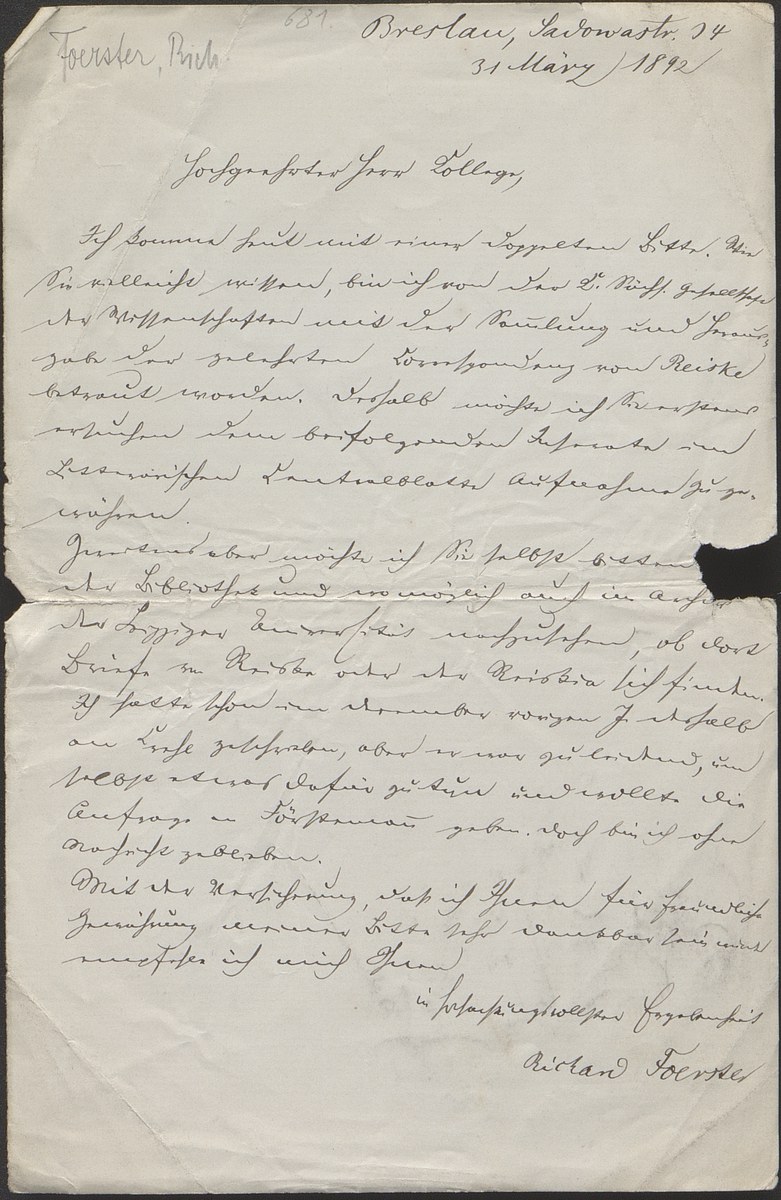 681.
Foerster, Rich.
Breslau, Sadowastr. 54
31 März 1892
Hochgeehrter Herr College,
Ich komme heut mit einer doppelten Bitte. Wie
Sie vielleicht wissen, bin ich von der K. Sächs. Gesellschaft
der Wissenschaften mit der Sammlung und Heraus-
gabe der gelehrten Correspondenz von Reiske
betraut worden. Deshalb möchte ich Sie erstens
ersuchen dem beifolgenden Inserate im
Litterarischen Centralblatte Aufnahme zu ge-
währen.
Zweitens aber möchte ich Sie selbst bitten
der Bibliothek und womöglich auch im Archiv
der Leipziger Universität nachzusehen, ob dort
Briefe von Reiske oder der Reiskia sich finden.
Ich hatte schon im December vorigen J. deshalb
an Krehl geschrieben, aber er war zu leidend, um
selbst etwas dafür zu tun und wollte die
Anfrage an Förstemann geben. Doch bin ich ohne
Nachricht geblieben.
Mit der Versicherung, daß ich Ihnen für freundliche
Gewährung meiner Bitte sehr dankbar sein werde
empfehle ich mich Ihnen
in hochachtungsvollster Ergebenheit
Richard Foerster